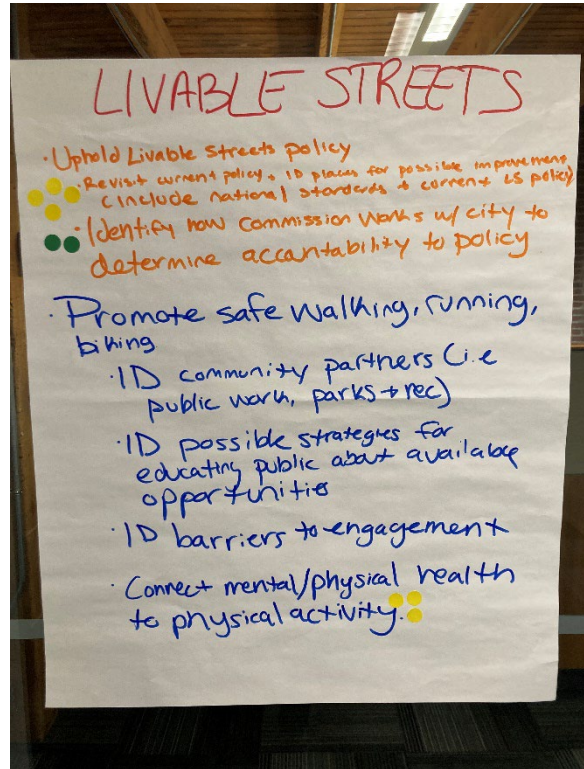 LIVABLE STREETS
· Uphold Livable Streets policy
· Revisit current policy + ID places for possible improvement
(include national standards + current LS policy)
· Identify how Commission works w/ city to
determine accantability to policy
· Promote safe walking, running,
biking
· ID community partners (i.e
public work, parks + rec)
· ID possible strategies for
educating public about available
opportunities
· ID barriers to engagement
· Connect mental/physical health
to physical activity.